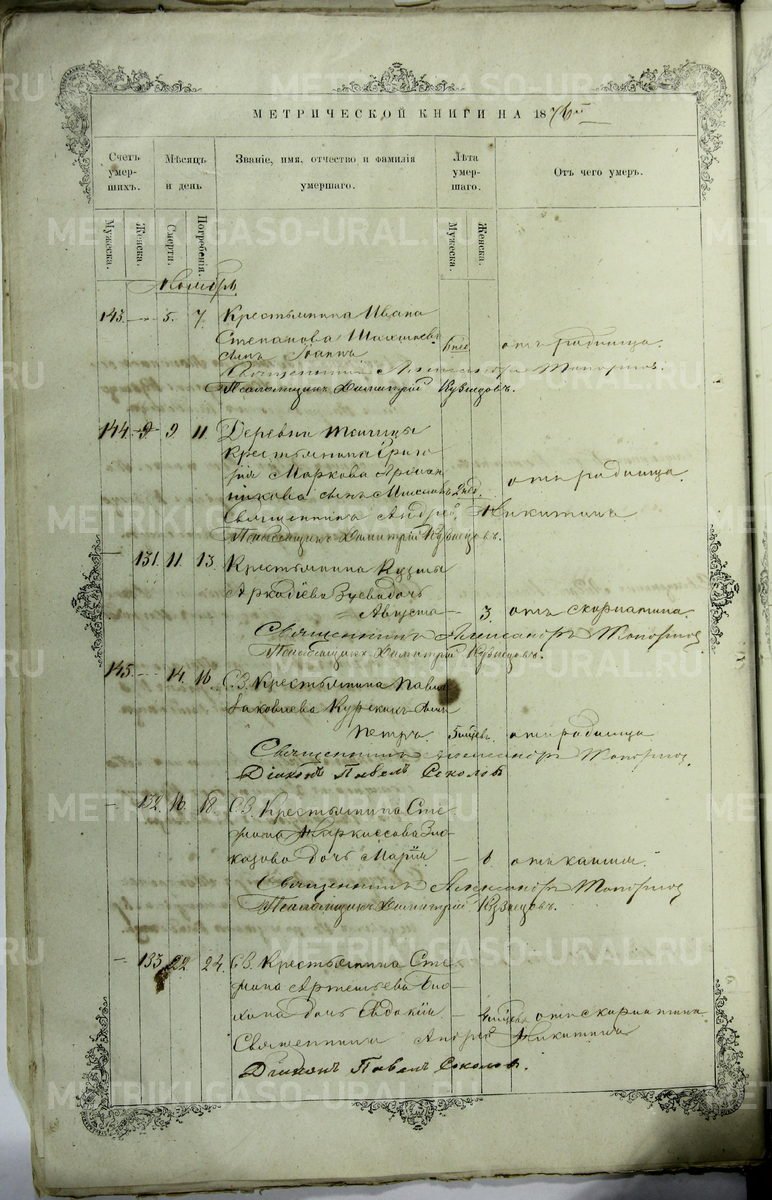 МЕТРИЧЕСКОЙ КНИГИ НА 1876й
Счетъ умер-шихъ.
Мѣсяцъ и день
Званіе, имя, отчество и фамилія умершаго.
Лѣта умер-шаго.
Отъ чего умеръ.
Мужеска.
Женска.
Смерти.
Погребенія.
Мужеска.
Женска.
Ноябрь
143. — 5. 7. Крестьянина Ивана
Степанова
сынъ Іоаннъ отъ родимца.
Священникъ Александръ Топорковъ.
Псаломщикъ Димитрій Кузнецовъ.
144. 9 11. Деревни
крестьянина Григо
рія Маркова
сынъ 2 нед. отъ родимца.
Священникъ Андрей Никитинъ
Псаломщикъ Димитрій Кузнецовъ.
— 131. 11. 13. Крестьянина Кузмы
Аркадіева Зуева дочь
Августа — 3. отъ скарлатина.
Священникъ Александръ Топорковъ
Псаломщикъ Димитрій Кузнецовъ.
145. — 14. 16. С.З. Крестьянина Павла
Яковлева Курскихъ сынъ
Петръ. 5 мѣсев. отъ родимца
Священникъ Александръ Топорковъ
Діаконъ Павелъ Соколовъ
— 132. 16. 18. С.З. Крестьянина Сте
фана Наркиссова Зло
казова дочь Марія — 1. отъ кашля.
Священникъ Александръ Топорковъ
Псаломщикъ Димитрій Кузнецовъ.
— 133 22 24. С.З. Крестьянина Сте
фана Артемьева
дочь Евдокія — отъ скарлатина
Священникъ Андрей Никитинъ
Діаконъ Павелъ Соколовъ.
METRIKI.GASO-URAL.RU